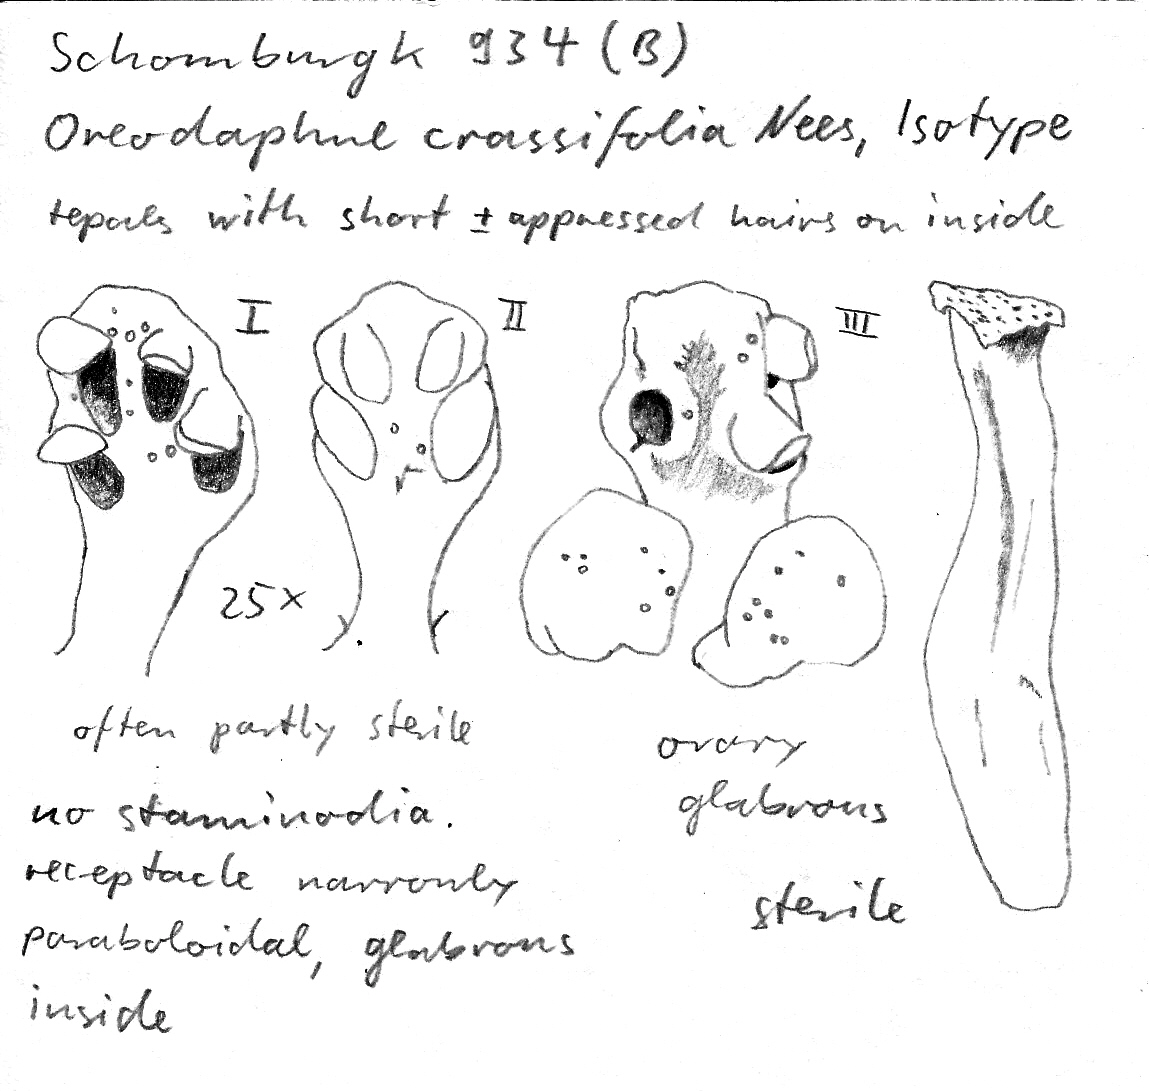 Schomburgk 934 (B)
Oreodaphne crassifolia Nees, Isotype
tepals with short ± appressed hairs on inside
I
II
III
25×
often partly sterile
ovary
glabrous
no staminodia.
receptacle narrowly
paraboloidal, glabrous
inside
sterile